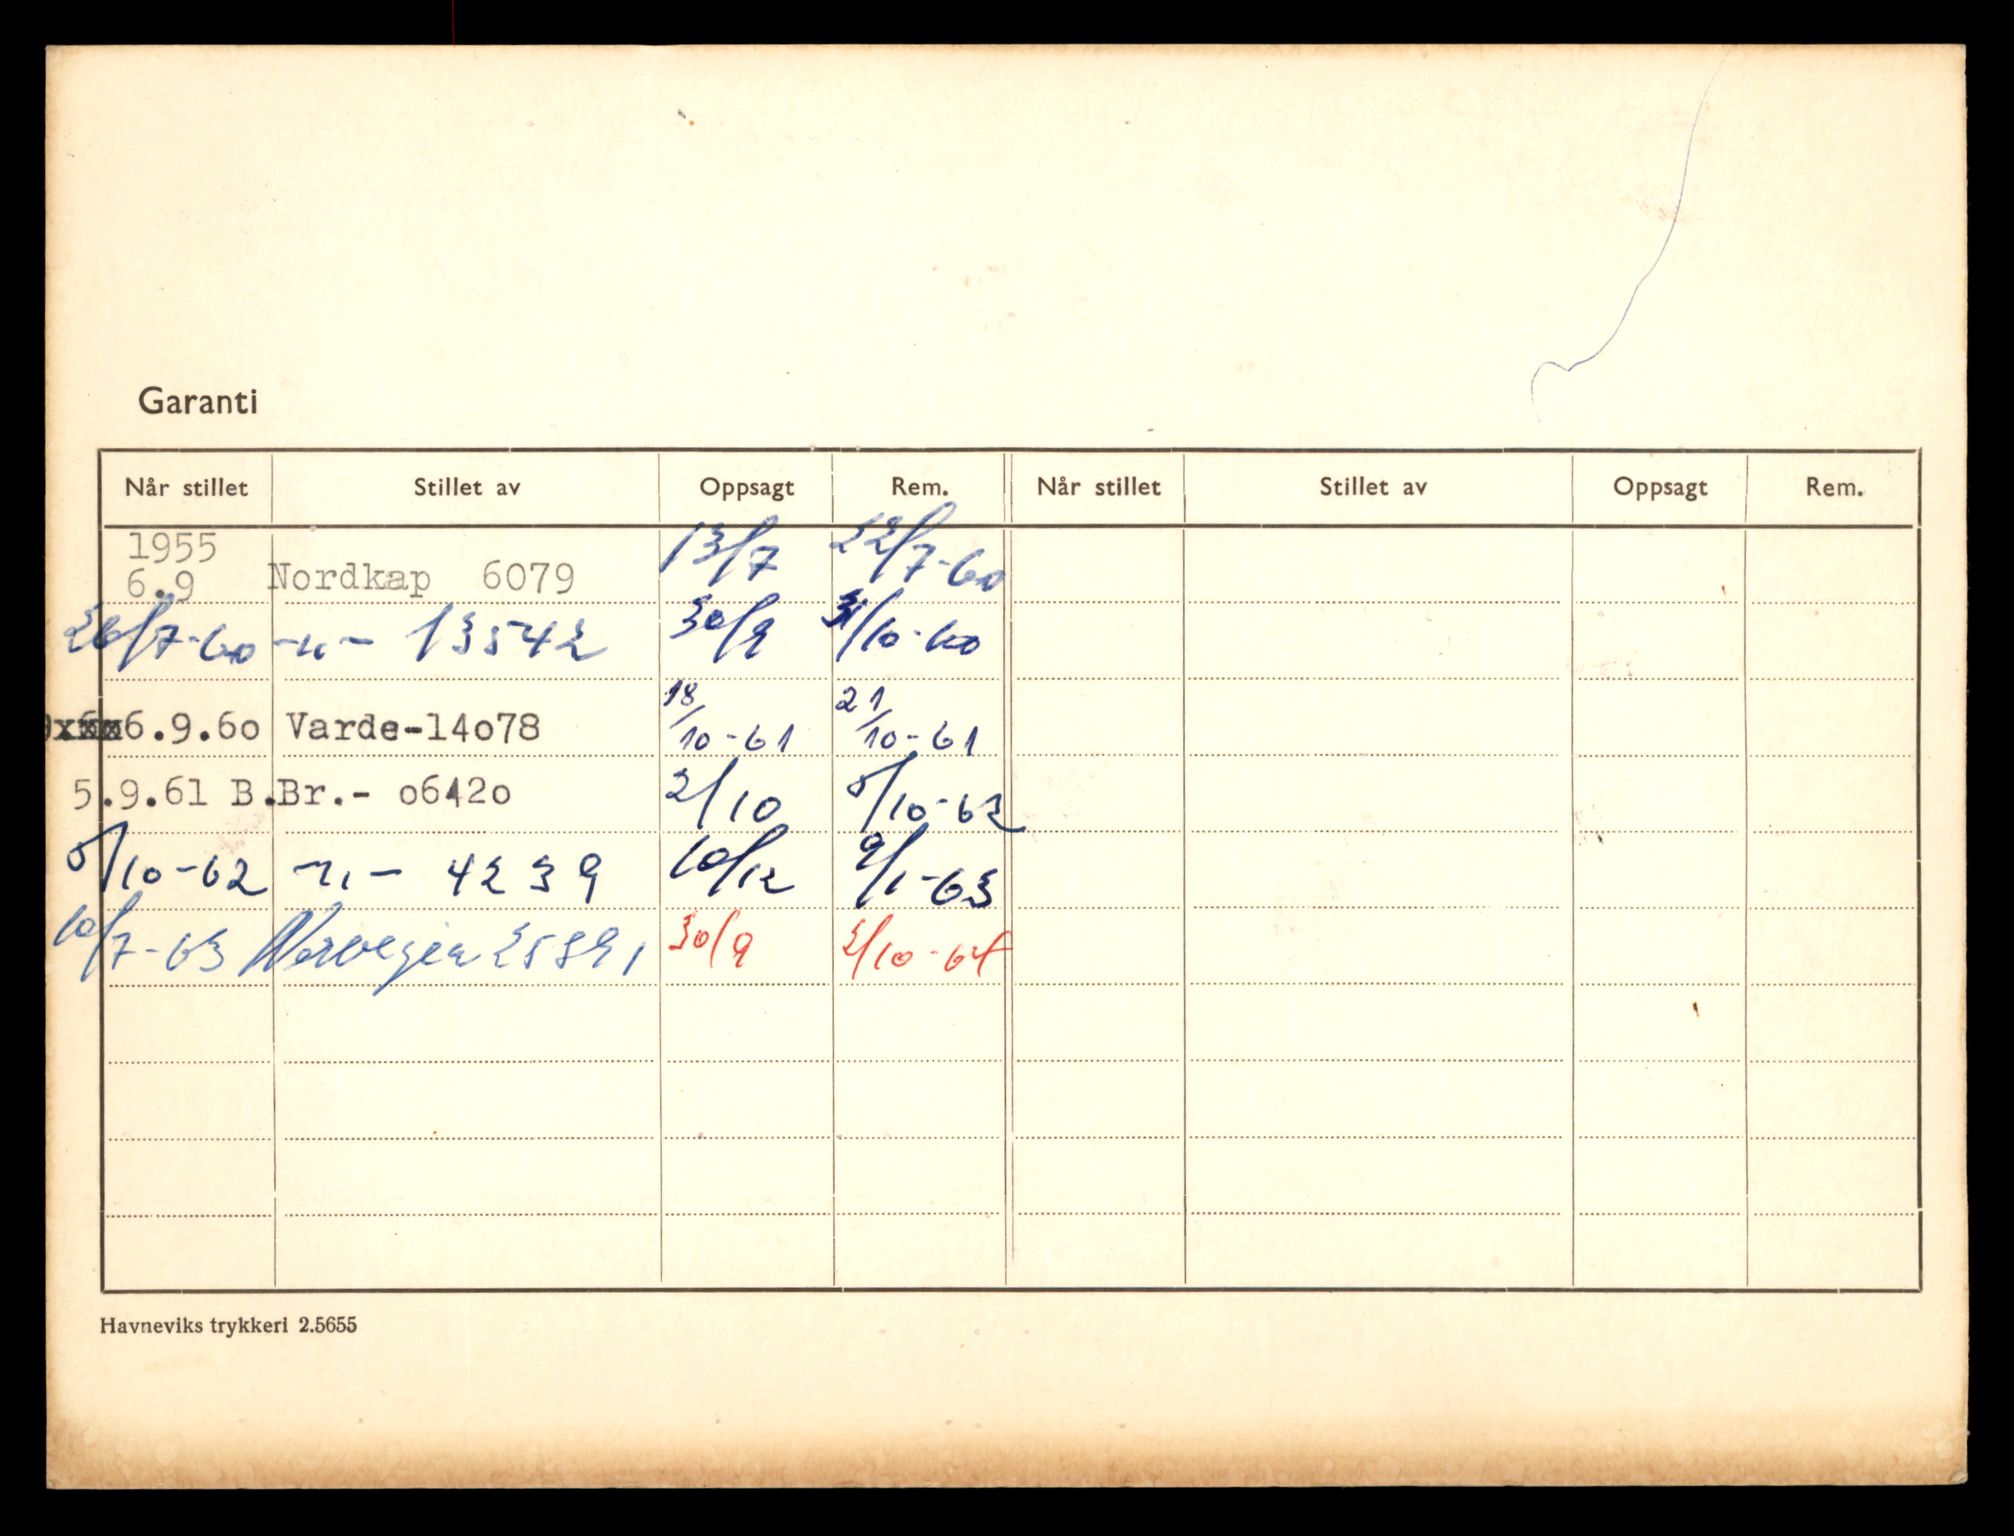 Garanti
Når stillet Stillet av Oppsagt Rem. Når stillet Stillet av Oppsagt Rem.
1955
6.9 Nordkap 6079 13/7 22/7-60
26/7-60 -"- 13542 30/9 /10-60
6.9.60 Varde-14o78 18/10-61 21/10-61
5.9.61 B.Br.- o642o 2/10 5/10-62
5/10-62 -"- 4239 10/12 9/1-63
10/7-63 Norvegia 25891 30/9 2/10-64
Havneviks trykkeri 2.5655